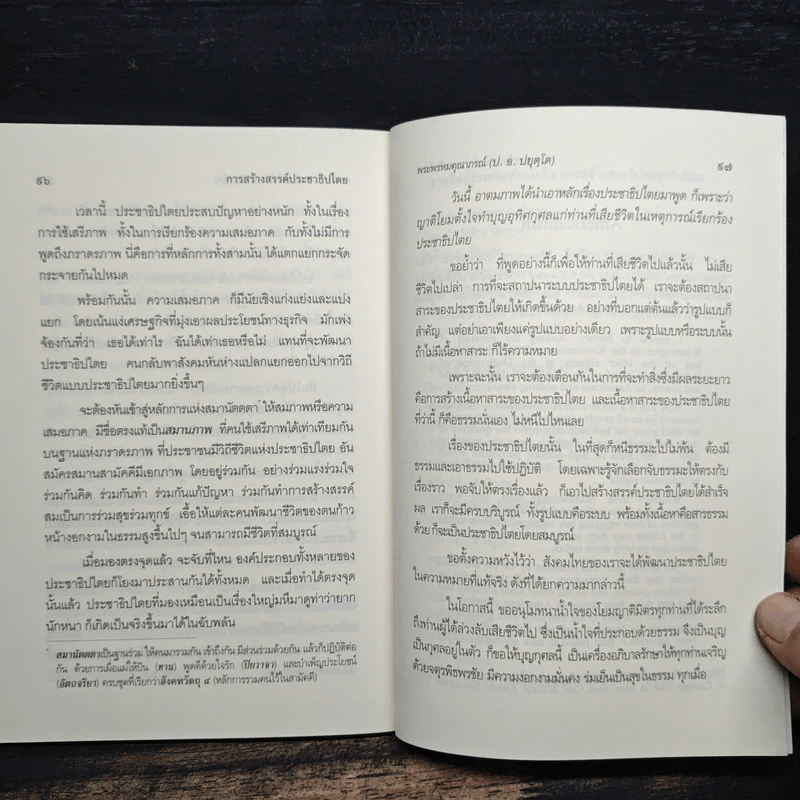 ๙๖ การสร้างสรรค์ประชาธิปไตย
เวลานี้ ประชาธิปไตยประสบปัญหาอย่างหนัก ทั้งในเรื่อง
การใช้เสรีภาพ ทั้งในการเรียกร้องความเสมอภาค กับทั้งไม่มีการ
พูดถึงภราดรภาพ นี่คือการที่หลักการทั้งสามนั้น ได้แตกแยกกระจัด
กระจายกันไปหมด
พร้อมกันนั้น ความเสมอภาค ก็มีนัยเชิงแก่งแย่งและแบ่ง
แยก โดยเน้นแง่เศรษฐกิจที่มุ่งเอาผลประโยชน์ทางธุรกิจ มักเพ่ง
จ้องกันที่ว่า เธอได้เท่าไร ฉันได้เท่าเธอหรือไม่ แทนที่จะพัฒนา
ประชาธิปไตย คนกลับพาสังคมหันห่างแปลกแยกออกไปจากวิถี
ชีวิตแบบประชาธิปไตยมากยิ่งขึ้นๆ
จะต้องหันเข้าสู่หลักการแห่งสมานัตตตา* ให้สมภาพหรือความ
เสมอภาค มีชื่อตรงแท้เป็นสมานภาพ ที่คนใช้เสรีภาพได้เท่าเทียมกัน
บนฐานแห่งภราดรภาพ ที่ประชาชนมีวิถีชีวิตแห่งประชาธิปไตย อัน
สมัครสมานสามัคคีมีเอกภาพ โดยอยู่ร่วมกัน อย่างร่วมแรงร่วมใจ
ร่วมกันคิด ร่วมกันทำ ร่วมกันแก้ปัญหา ร่วมกันทำการสร้างสรรค์
สมเป็นการร่วมสุขร่วมทุกข์ เอื้อให้แต่ละคนพัฒนาชีวิตของตนก้าว
หน้างอกงามในธรรมสูงขึ้นไปๆ จนสามารถมีชีวิตที่สมบูรณ์
เมื่อมองตรงจุดแล้ว จะจับที่ไหน องค์ประกอบทั้งหลายของ
ประชาธิปไตยก็โยงมาประสานกันได้ทั้งหมด และเมื่อทำได้ตรงจุด
นั้นแล้ว ประชาธิปไตยที่มองเหมือนเป็นเรื่องใหญ่มหึมาดูท่าว่ายาก
นักหนา ก็เกิดเป็นจริงขึ้นมาได้ในฉับพลัน
* สมานัตตตาเป็นฐานร่วม ให้คนมารวมกัน เข้าถึงกัน มีส่วนร่วมด้วยกัน แล้วก็ปฏิบัติต่อ
กัน ด้วยการเผื่อแผ่ให้ปัน (ทาน) พูดดีด้วยใจรัก (ปิยวาจา) และบำเพ็ญประโยชน์
(อัตถจริยา) ครบชุดที่เรียกว่าสังคหวัตถุ ๔ (หลักการรวมคนไว้ในสามัคคี)
พระพรหมคุณาภรณ์ (ป. อ. ปยุตฺโต) ๙๗
วันนี้ อาตมภาพได้นำเอาหลักเรื่องประชาธิปไตยมาพูด ก็เพราะว่า
ญาติโยมตั้งใจทำบุญอุทิศกุศลแก่ท่านที่เสียชีวิตในเหตุการณ์เรียกร้อง
ประชาธิปไตย
ขอย้ำว่า ที่พูดอย่างนี้ก็เพื่อให้ท่านที่เสียชีวิตไปแล้วนั้น ไม่เสีย
ชีวิตไปเปล่า การที่จะสถาปนาระบบประชาธิปไตยได้ เราจะต้องสถาปนา
สาระของประชาธิปไตยให้เกิดขึ้นด้วย อย่างที่บอกแต่ต้นแล้วว่ารูปแบบก็
สำคัญ แต่อย่าเอาเพียงแค่รูปแบบอย่างเดียว เพราะรูปแบบหรือระบบนั้น
ถ้าไม่มีเนื้อหาสาระ ก็ไร้ความหมาย
เพราะฉะนั้น เราจะต้องเตือนกันในการที่จะทำสิ่งซึ่งมีผลระยะยาว
คือการสร้างเนื้อหาสาระของประชาธิปไตย และเนื้อหาสาระของประชาธิปไตย
ที่ว่านี้ ก็คือธรรมนั่นเอง ไม่หนีไปไหนเลย
เรื่องของประชาธิปไตยนั้น ในที่สุดก็หนีธรรมะไปไม่พ้น ต้องมี
ธรรมและเอาธรรมไปใช้ปฏิบัติ โดยเฉพาะรู้จักเลือกจับธรรมะให้ตรงกับ
เรื่องราว พอจับให้ตรงเรื่องแล้ว ก็เอาไปสร้างสรรค์ประชาธิปไตยได้สำเร็จ
ผล เราก็จะมีครบบริบูรณ์ ทั้งรูปแบบคือระบบ พร้อมทั้งเนื้อหาคือสารธรรม
ด้วย ก็จะเป็นประชาธิปไตยโดยสมบูรณ์
ขอตั้งความหวังไว้ว่า สังคมไทยของเราจะได้พัฒนาประชาธิปไตย
ในความหมายที่แท้จริง ดังที่ได้ยกความมากล่าวนี้
ในโอกาสนี้ ขออนุโมทนาน้ำใจของโยมญาติมิตรทุกท่านที่ได้ระลึก
ถึงท่านผู้ได้ล่วงลับเสียชีวิตไป ซึ่งเป็นน้ำใจที่ประกอบด้วยธรรม จึงเป็นบุญ
เป็นกุศลอยู่ในตัว ก็ขอให้บุญกุศลนี้ เป็นเครื่องอภิบาลรักษาให้ทุกท่านเจริญ
ด้วยจตุรพิธพรชัย มีความงอกงามมั่นคง ร่มเย็นเป็นสุขในธรรม ทุกเมื่อ